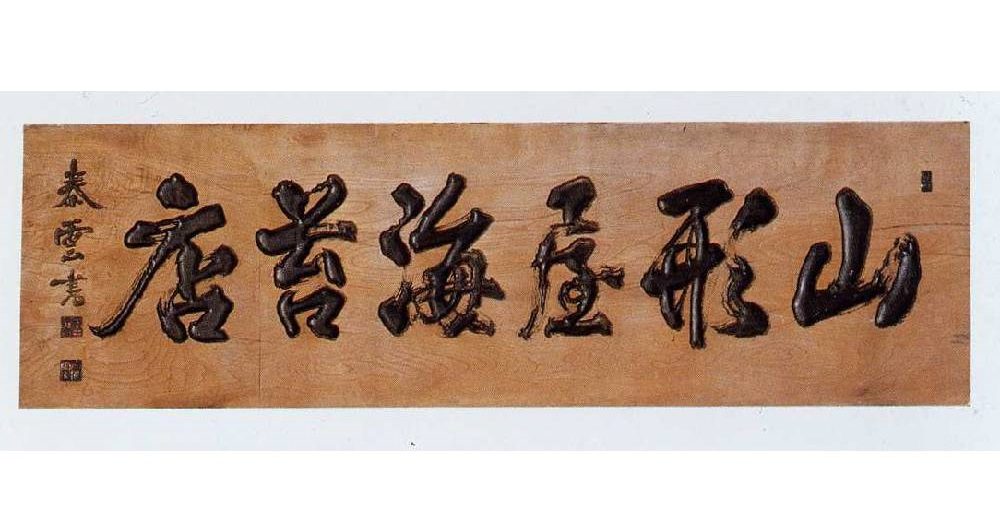 山形屋海苔店
泰雲書